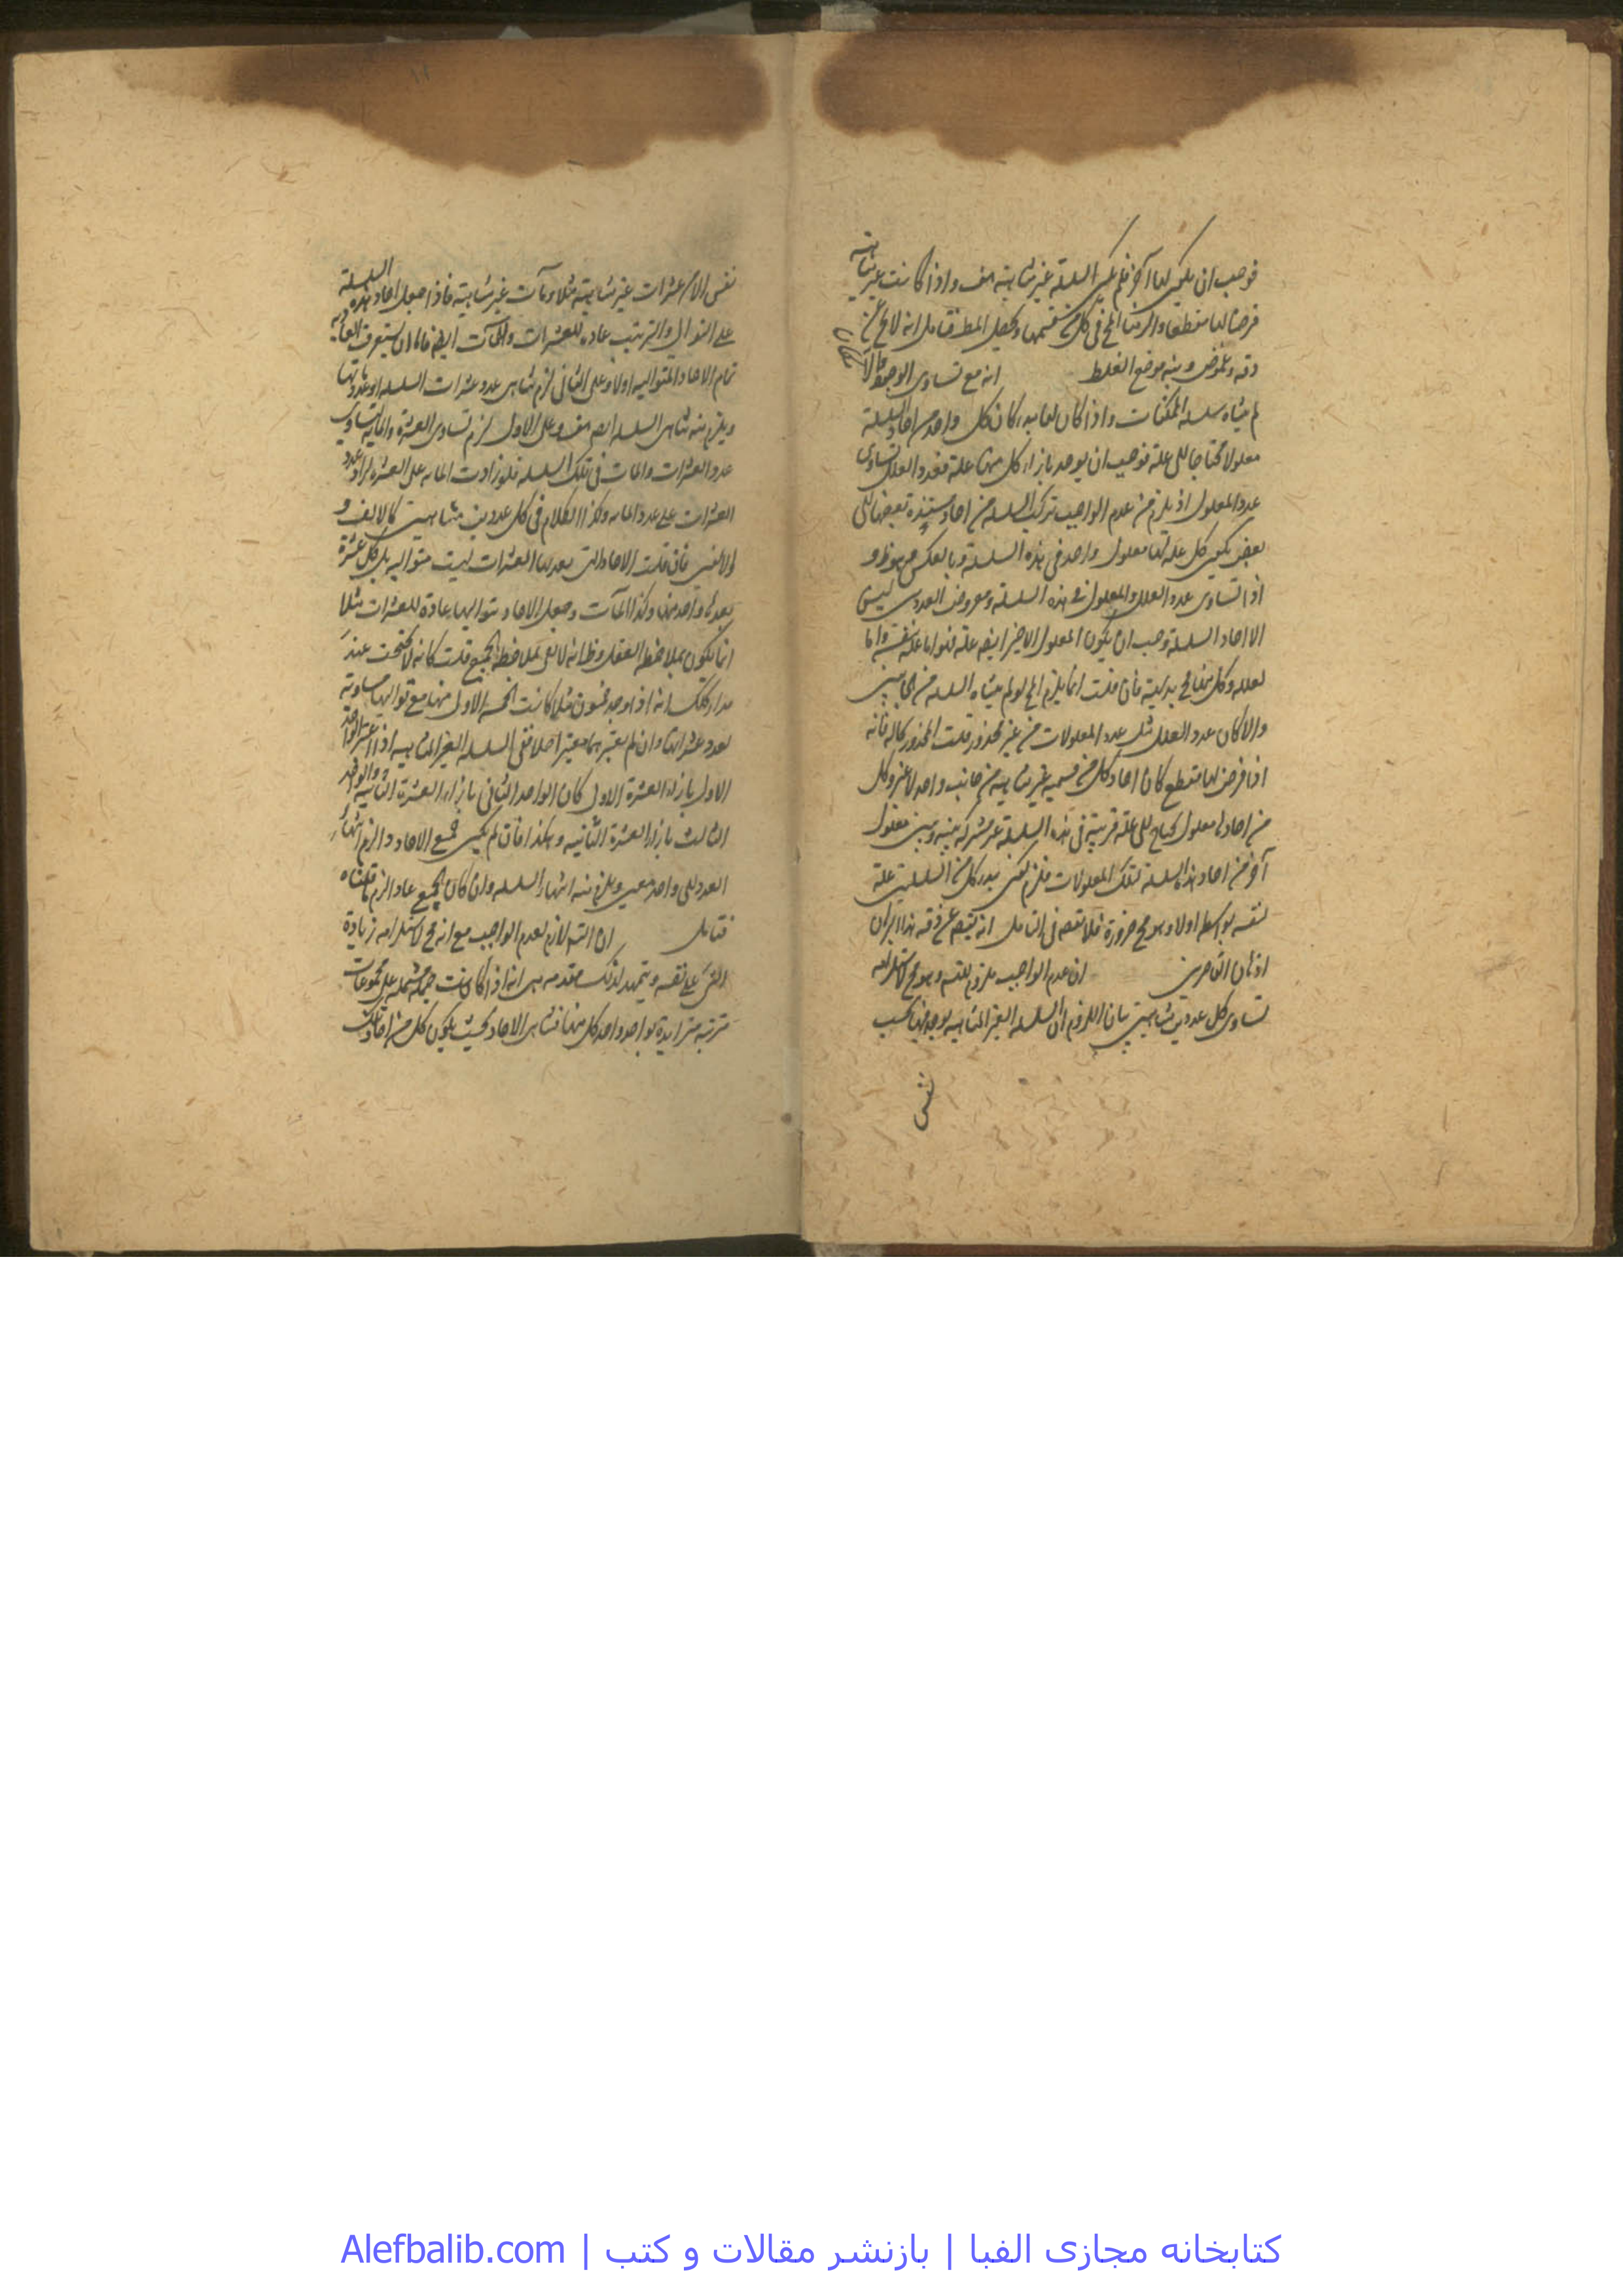 فوجب ان يكون لها آخر فلم يكن السلسلة غير متناهية هف واذا كانت غير متناهية
فرضنا لها مقطعا والزمنا المح في كل من قسميها ويحصل المط فتأمل انه لا يخ عن
دقة وغموض وبينه موضع الغلط انه مع تساوى الوجود
لم يتناه سلسلة الممكنات واذا كان لها بداية كان كل واحد من احاد السلسلة
معلولا محتاجا الى علة فوجب ان يوجد بازاء كل منها علة فعدد العلل تساوى
عدد المعلول اذ يلزم من عدم الواجب تركب السلسلة من احاد مستندة بعضها الى
بعض يكون كل علة لها معلول واحد في هذه السلسلة وبالعكس وهو ظ و
اذا تساوى عدد العلل والمعلول في هذه السلسلة ومعروض العددين ليس
الا احاد السلسلة وجب ان يكون المعلول الاخير ايضا علة فهو اما علة نفسه واما
لعلله وكل منها مح بديهة فان قلت انما يلزم المح لو لم يتناه السلسلة من الجانبين
والا كان عدد العلل مثل عدد المعلولات من غير محذور قلت المحذور بحاله فانه
اذا فرض لها مقطع كان احاد كل من قسميه غير متناهية من جانب واحد لا غير وكل
من احادها معلول يحتاج الى علة قريبة في هذه السلسلة غير مشتركة بينه وبين معلول
آخر من احاد هذه السلسلة لتلك المعلولات فلزم كون مبدء كل من السلسلتين علة
لنفسه بواسطة اولا وهو مح ضرورة فلا تغفل في التأمل انه يتضح عن دقة هذا البرهان
اذهان القاصرين ان عدم الواجب ملزوم للتس وهو مح لاستلزامه
تساوى كل عددين متناهيين بيان اللزوم ان السلسلة الغير المتناهية يوجد فيها بحسب
نفس
١١
نفس الامر عشرات غير متناهية مثلا ومآت غير متناهية فاذا جعل احاد هذه السلسلة
على التوالى والترتيب عادة للعشرات والمآت ايضا فاما ان يستغرق العادية
تمام الاحاد المتوالية اولا وعلى الثانى لزم تناهى عدد عشرات السلسلة او عدد مآتها
ويلزم منه تناهى السلسلة ايضا هف وعلى الاول لزم تساوى العشرة والماية لتساوى
عدد العشرات والمآت في تلك السلسلة فلو زادت الماية على العشرة لزاد عدد
العشرات على عدد الماية وكذا الكلام في كل عددين متناهيين كالالف و
الالفين فان قلت الاحاد التي يعد بها العشرات ليست متوالية بل كل عشرة
يعدها واحد منها وكذا المآت وجعل الاحاد بتواليها عادة للعشرات مثلا
انما يكون بملاحظة العقل وظ انه لا يفى بملاحظة الجميع قلت كانه لا يختفى عند
مداركك انه اذا وجد خمسون مثلا كانت الخمسة الاول منها مع تواليها مساوية
لعدد عشراتها وان لم يعتبرها معتبر اصلا ففى السلسلة الغير المتناهية اذا اعتبر الواحد
الاول بازاء العشرة الاولى كان الواحد الثانى بازاء العشرة الثانية والواحد
الثالث بازاء العشرة الثانية وهكذا فان لم يكن جميع الاحاد عادا لزم انتهاء
العدد الى واحد معين ويلزم منه انتهاء السلسلة وان كان الجميع عاد الزم ما قلناه
فتأمل ان التس لازم لعدم الواجب مع انه مح لاستلزامه زيادة
الشئ على نفسه ويتمهد لذلك مقدمة هى انه اذا كانت جملة مشتملة على مجموعات
مترتبة متزايدة بواحد واحد كل منها متناهى الاحاد بحيث يكون كل من احاد تلك
کتابخانه مجازی الفبا | بازنشر مقالات و کتب | Alefbalib.com